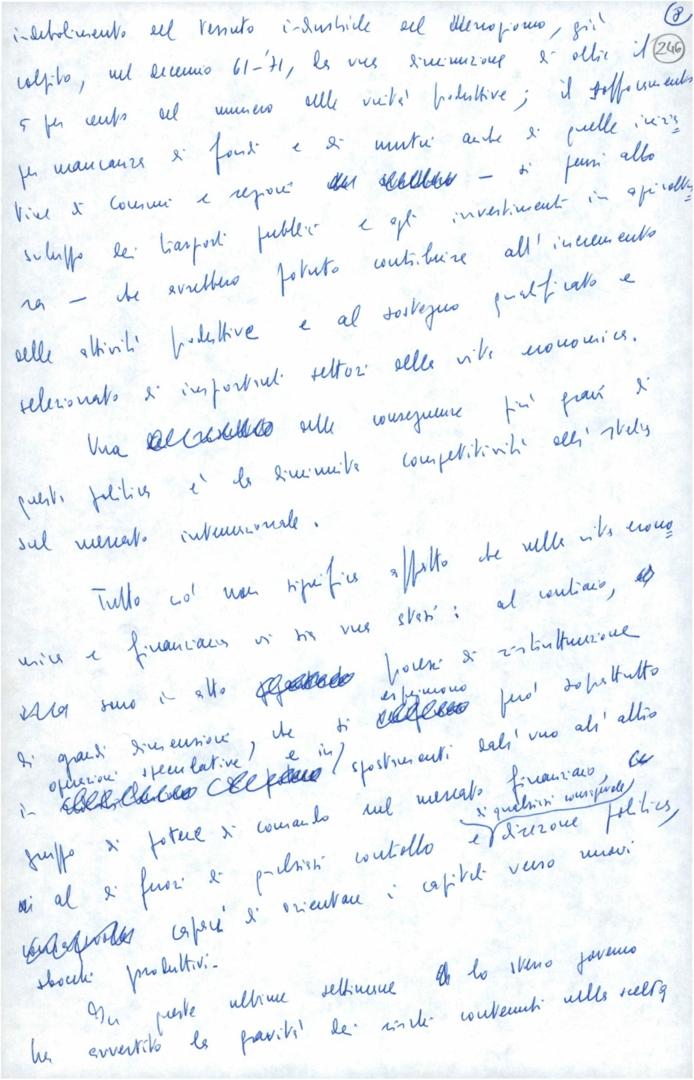 8
indebolimento del tessuto industriale del Mezzogiorno, già
246
colpito, nel decennio 61-'71, da una diminuzione di oltre il
5 per cento del numero delle unità produttive; il soffocamento
per mancanza di fondi e di mutui anche di quelle inizia=
tive di Comuni e regioni — si pensi allo
sviluppo dei trasporti pubblici e agli investimenti in agricoltu=
ra — che avrebbero potuto contribuire all'incremento
delle attività produttive e al sostegno qualificato e
selezionato di importanti settori della vita economica.
Una delle conseguenze più gravi di
questa politica è la diminuita competitività dell'Italia
sul mercato internazionale.
Tutto ciò non significa affatto che nella vita econo=
mica e finanziaria vi sia una stasi: al contrario,
sono in atto processi di ristrutturazione
di grandi dimensioni, che si esprimono però soprattutto
in operazioni speculative, e in spostamenti dall'uno all'altro
gruppo di potere di comando sul mercato finanziario,
al di fuori di qualsiasi controllo e di qualsiasi consapevole direzione politica,
capace di orientare i capitali verso nuovi
sbocchi produttivi.
In queste ultime settimane lo stesso governo
ha avvertito la gravità dei rischi contenuti nella scelta